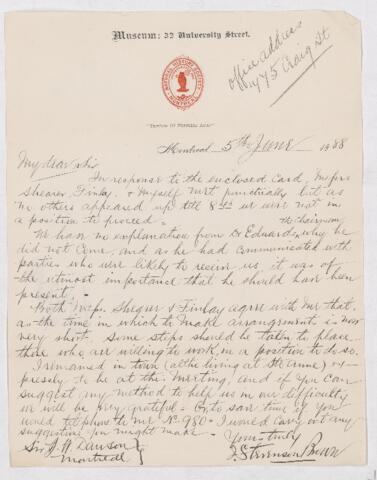 Museum: 32 University Street.
office address
475 Craig St
NATURAL HISTORY SOCIETY
MONTREAL
"TENTOR IN NOBILES ACTU"
Montreal 5th June 1888
My dear Sir
In response to the enclosed card, Messrs
Shearer, Finlay, & myself met punctually but as
no others appeared up till 8 we were not in
a position to proceed.
the chairman
We have no explanation from Dr Edwards why he
did not come, and as he had communicated with
parties who were likely to receive us it was of
the utmost importance that he should have been
present.
Both Messrs. Shearer & Finlay agree with me that,
as the time in which to make arrangements is now
very short, some steps should be taken to place
those who are willing to work, in a position to do so.
I remained in town (altho living at St Anne) ex-
pressly to be at the meeting, and if you can
suggest any method to help us in our difficulty
we will be very grateful. Or to save time if you
would telephone to me No 980. I would carry out any
suggestion you might make.
Yours truly
J. Stevenson Brown
Sir J. W. Dawson
Montreal